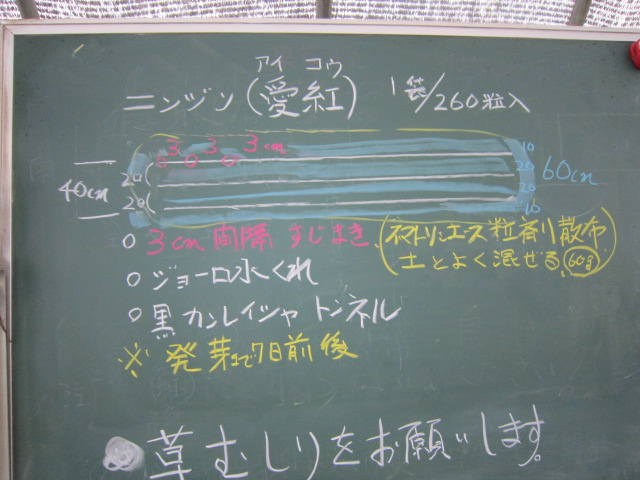 アイ コウ
ニンジン(愛紅) 1袋/260粒入
3 3 3cm
10
20
20
10
60cm
40cm
20
20
○3cm間隔 すじまき、(ネマトリンエース粒剤散布
土とよく混ぜる。60g)
○ジョーロ水くれ
○黒カンレイシャ トンネル
※発芽まで7日前後
●草むしりをお願いします。